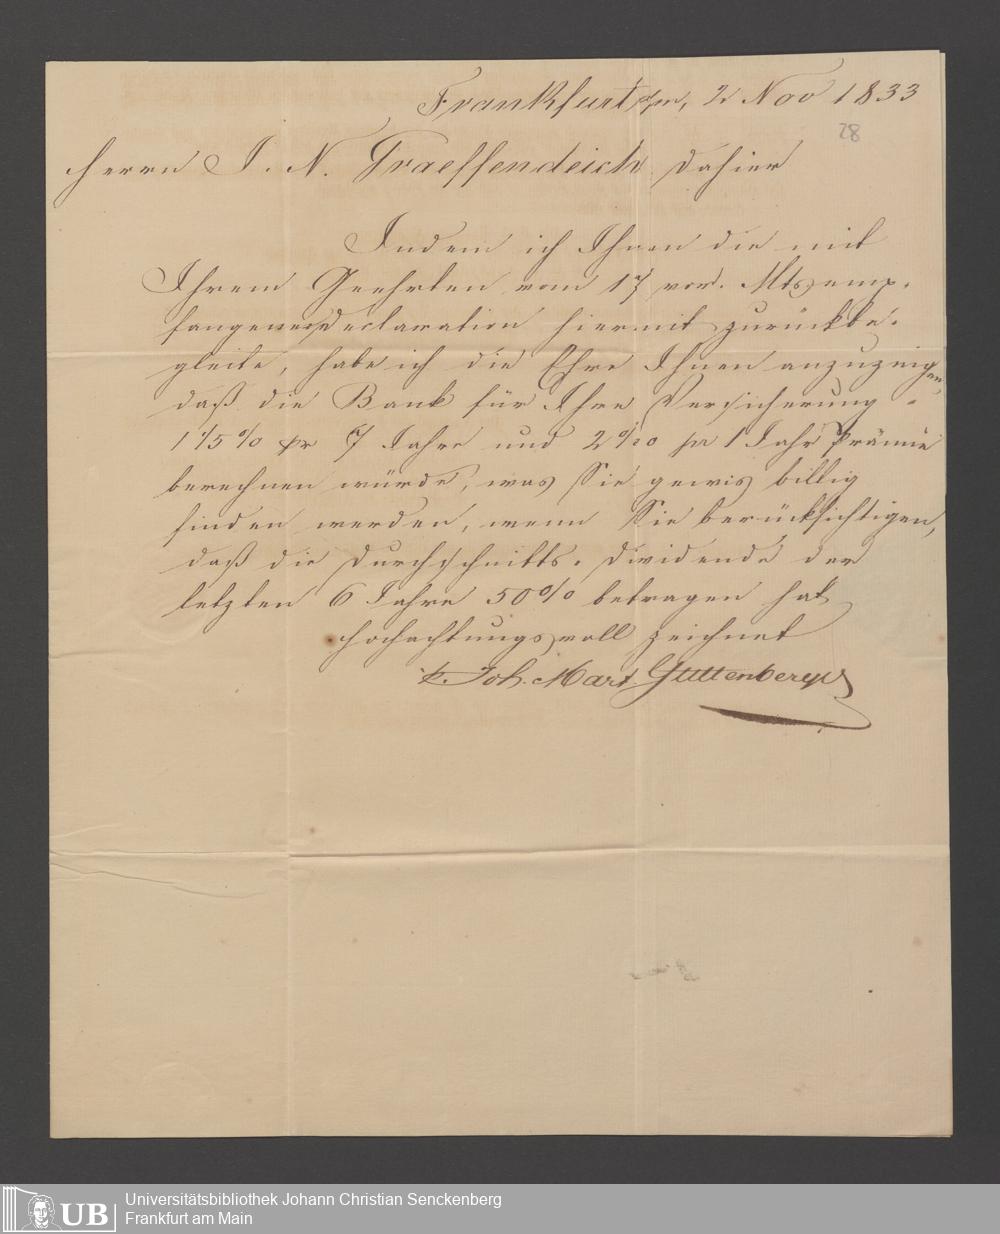 Frankfurt a/m, 2 Nov 1833
28
Herrn J. N. Graeffendeich dahier
Indem ich Ihnen die mit
Ihrem Geehrten vom 17 vor. Mts emp-
fangene Declaration hiermit zurückbe-
gleite, habe ich die Ehre Ihnen anzuzeigen
daß die Bank für Ihre Versicherung
pr 7 Jahre und 2 ‰ pr 1 Jahr Prämie
berechnen würde, was Sie gewis billig
finden werden, wenn Sie berücksichtigen,
daß die Durchschnitts-Dividende der
letzten 6 Jahre 50% betragen hat
Hochachtungsvoll zeichnet
Joh. Mart.
Universitätsbibliothek Johann Christian Senckenberg
Frankfurt am Main
UB